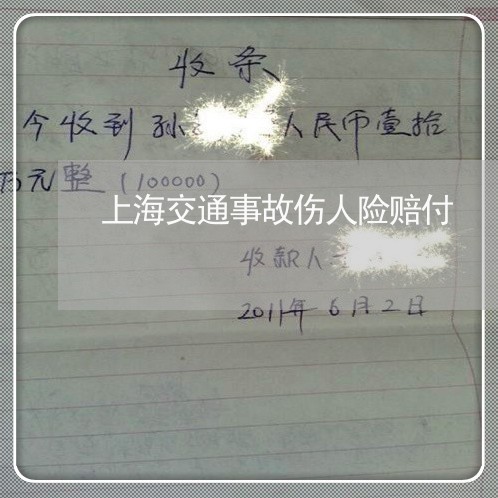 收条
今收到孙 人民币壹拾
万元整（100000）
上海交通事故伤人险赔付
收款人
2011年6月2日